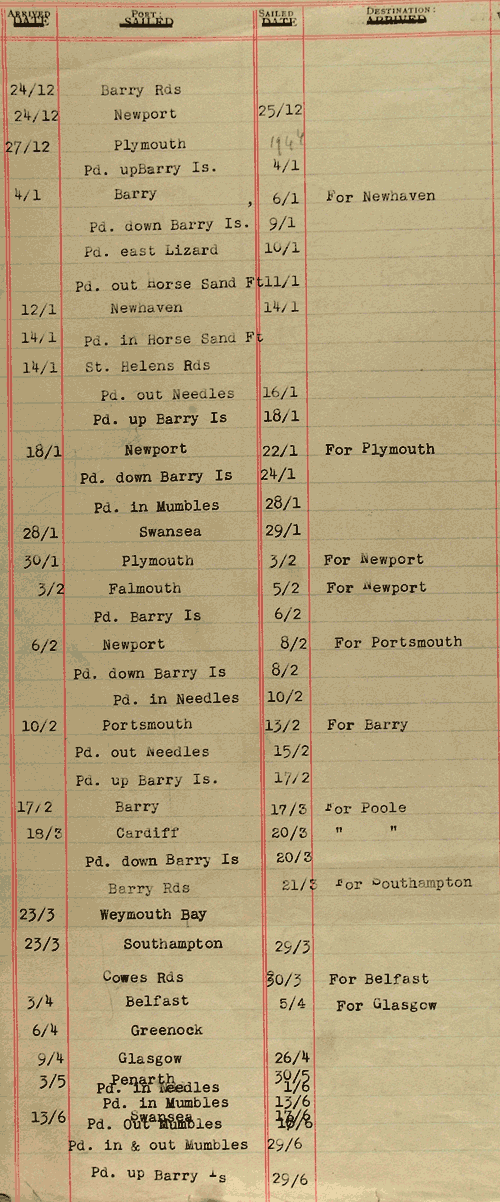 ARRIVED DATE PORT: SAILED SAILED DATE DESTINATION: ARRIVED
24/12 Barry Rds
24/12 Newport 25/12
27/12 Plymouth 1944
Pd. upBarry Is. 4/1
4/1 Barry , 6/1 For Newhaven
Pd. down Barry Is. 9/1
Pd. east Lizard 10/1
Pd. out Horse Sand Ft11/1
12/1 Newhaven 14/1
14/1 Pd. in Horse Sand Ft
14/1 St. Helens Rds
Pd. out Needles 16/1
Pd. up Barry Is 18/1
18/1 Newport 22/1 For Plymouth
Pd. down Barry Is 24/1
Pd. in Mumbles 28/1
28/1 Swansea 29/1
30/1 Plymouth 3/2 For Newport
3/2 Falmouth 5/2 For Newport
Pd. Barry Is 6/2
6/2 Newport 8/2 For Portsmouth
Pd. down Barry Is 8/2
Pd. in Needles 10/2
10/2 Portsmouth 13/2 For Barry
Pd. out Needles 15/2
Pd. up Barry Is. 17/2
17/2 Barry 17/3 For Poole
18/3 Cardiff 20/3 " "
Pd. down Barry Is 20/3
Barry Rds 21/3 For Southampton
23/3 Weymouth Bay
23/3 Southampton 29/3
Cowes Rds 30/3 For Belfast
3/4 Belfast 5/4 For Glasgow
6/4 Greenock
9/4 Glasgow 26/4
3/5 Penarth 30/5
Pd. in Needles 1/6
Pd. in Mumbles 13/6
13/6 Swansea
Pd. Out Mumbles
Pd. in & out Mumbles 29/6
Pd. up Barry Is 29/6